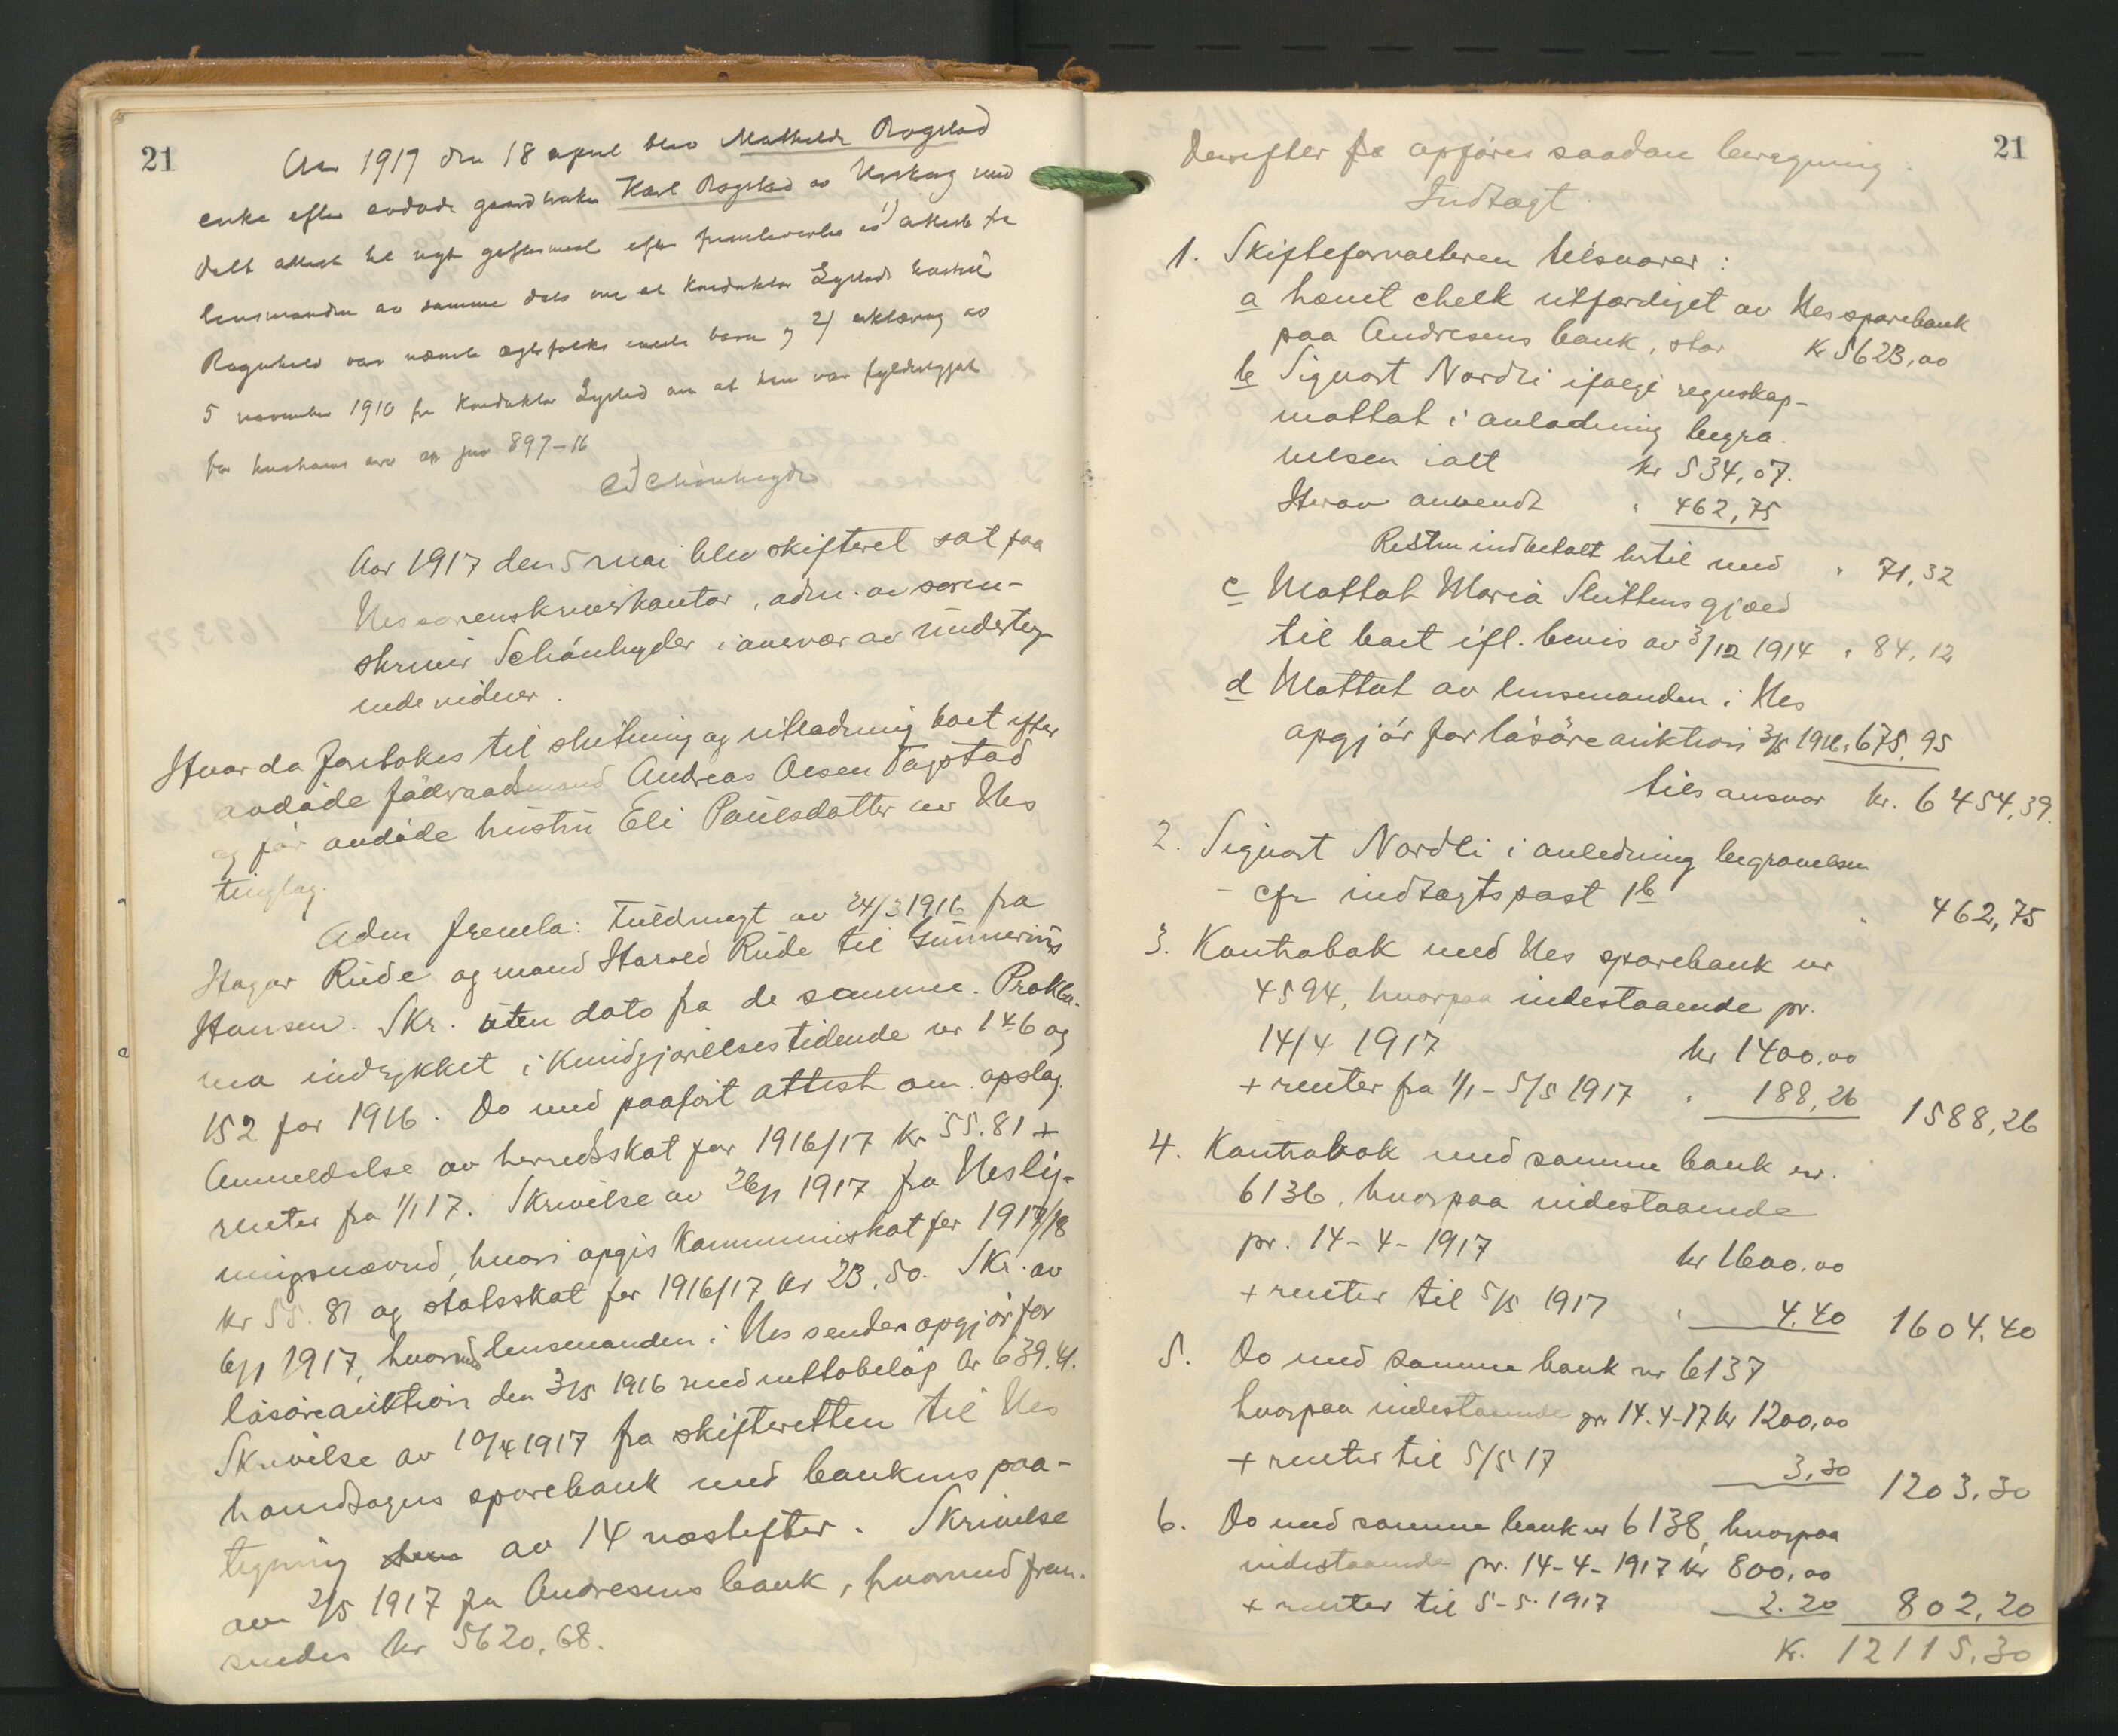 21
Aar 1917 den 18 april blev Mathilde Rogstad
enke efter avdøde gaardbruker Karl Rogstad av Urskog med
delt attest til nyt egteskap efter fremleverelse av 1) attest fra
lensmanden av samme dato om at konduktør Lystads hustru
Ragnhild var nævnte egtefolks eneste barn og 2) erklæring av
5 november 1910 fra konduktør Lystad om at han var fyldestgjort
for hustruens arv jnr 897-16
Aar 1917 den 5 mai blev skifteret sat paa
Nes sorenskriverkontor, adm. av soren-
skriver Schönheyder i overvær av underteg-
nede vidner.
Hvorda foretokes til slutning og utlodning boet efter
avdøde föderaadsmand Andreas Olsen Fagstad
og før avdøde hustru Eli Paulsdatter av Nes
tinglag.
Adm fremla: Fuldmagt av 24/3 1916 fra
Hagar Rude og mand Harald Rude til Gunnerius
Hansen. Skr. uten dato fra de samme. Prokla-
ma indrykket i Kundgjørelsestidende nr 146 og
152 for 1916. Do med paaført attest om opslag.
Anmeldelse av herredsskat for 1916/17 kr 55.81 +
renter fra 1/1 17. Skrivelse av 26/1 1917 fra Nes lig-
ningsnævnd, hvori opgis kommuneskat for 1917/18
kr 55.81 og statsskat for 1916/17 kr 23.50. Skr. av
6/1 1917, hvormed lensmanden i Nes sender opgjør for
løsøreauktion den 3/5 1916 med nettobeløp kr 639.41.
Skrivelse av 10/4 1917 fra skifteretten til Nes
sparebank med bankens paa-
tegning av 14 næstefter. Skrivelse
av 2/5 1917 fra Andresens bank, hvormed frem-
sendes kr 5620,68.
21
Derefter opføres saadan beregning
Indtægt.
1. Skifteforvalteren tilsvarer:
a hævet chek utfærdiget av Nes sparebank
paa Andresens bank, stor kr 5623,00
b Sigvart Nordli ifølge regnskap-
mottat i anledning begra-
velsen ialt kr 534,07.
Herav anvendt " 462,75
Resten indbetalt hertil med " 71,32
c Mottat Maria Sluttens gjæld
til boet ifl. bevis av 3/12 1914 " 84,12
d Mottat av lensmanden i Nes
opgjør for løsøreauktion 3/5 1916 " 675,95
tils ansvar kr. 6454,39.
2. Sigvart Nordli i anledning begravelsen
- cfr indtægtspost 1b " 462,75
3. Kontrabok med Nes sparebank nr
4594, hvorpaa indestaaende pr.
14/4 1917 kr 1400,00
+ renter fra 1/1 - 5/5 1917 " 188,26 1588,26
4. Kontrabok med samme bank nr.
6136, hvorpaa indestaaende
pr. 14-4-1917 kr 1600.00
+ renter til 5/5 1917 " 4.40 1604.40
5. Do med samme bank nr 6137
hvorpaa indestaaende pr 14.4-17 kr 1200,00
+ renter til 5/5 17 3,30 1203,30
6. Do med samme bank nr 6138, hvorpaa
indestaaende pr. 14-4-1917 kr 800,00
+ renter til 5-5-1917 2.20 802,20
Kr. 12115,30